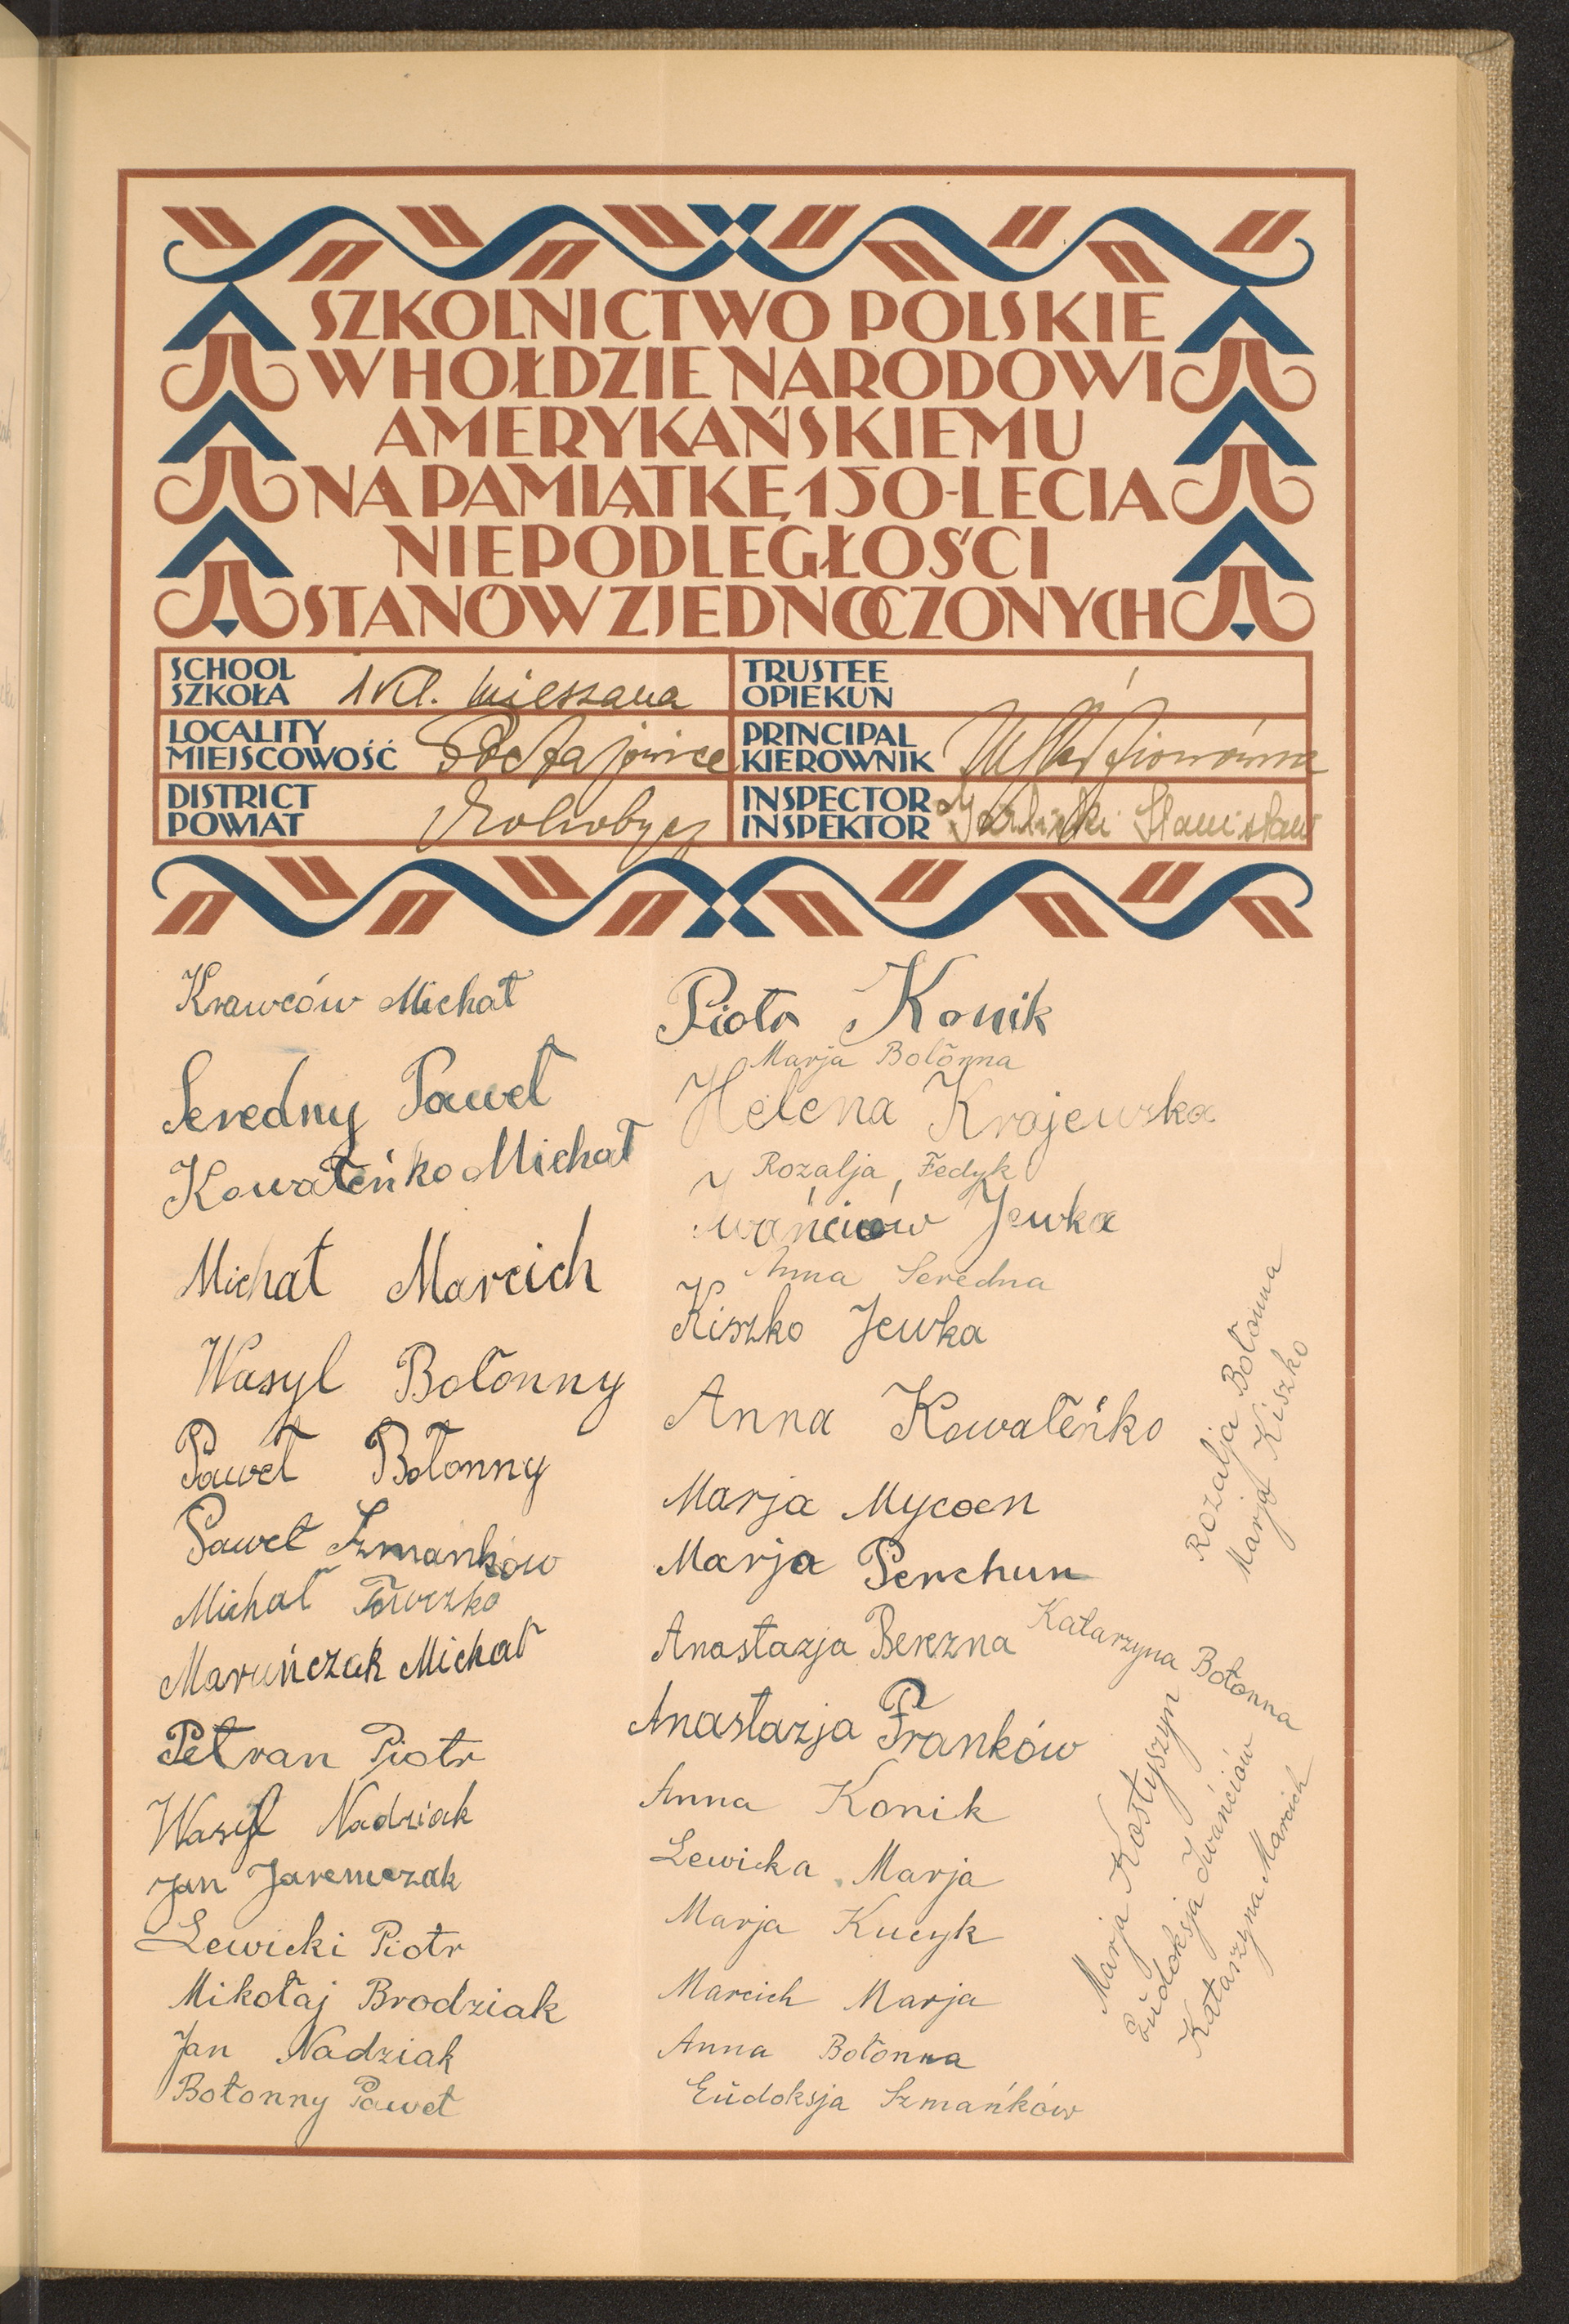 SZKOLNICTWO POLSKIE
W HOŁDZIE NARODOWI
AMERYKAŃSKIEMU
NA PAMIĄTKĘ 150-LECIA
NIEPODLEGŁOŚCI
STANÓW ZJEDNOCZONYCH
SCHOOL
SZKOŁA 1 kl. mieszana
TRUSTEE
OPIEKUN
LOCALITY
MIEJSCOWOŚĆ
PRINCIPAL
KIEROWNIK
DISTRICT
POWIAT Drohobycz
INSPECTOR
INSPEKTOR Stanisław
Krawców Michał
Seredny Paweł
Kowałeńko Michał
Michał Marcich
Wasyl Bołonny
Paweł Bołonny
Paweł Szmańków
Michał
Maruńczak Michał
Petran Piotr
Wasyl Nadziak
Jan Jaremczak
Lewicki Piotr
Mikołaj Brodziak
Jan Nadziak
Bołonny Paweł
Piotr Konik
Marja Bołonna
Helena Krajewska
Rozalja Fedyk
Iwańciów Jewka
Anna Seredna
Kiszko Jewka
Anna Kowałeńko
Marja Mycoen
Marja Perchun
Anastazja Berezna
Anastazja Franków
Anna Konik
Lewicka Marja
Marja Kucyk
Marcich Marja
Anna Bołonna
Eudoksja Szmańków
Rozalja Bołonna
Marja Kiszko
Katarzyna Bołonna
Marja Kostyszyn
Eudoksja Iwańciów
Katarzyna Marcich